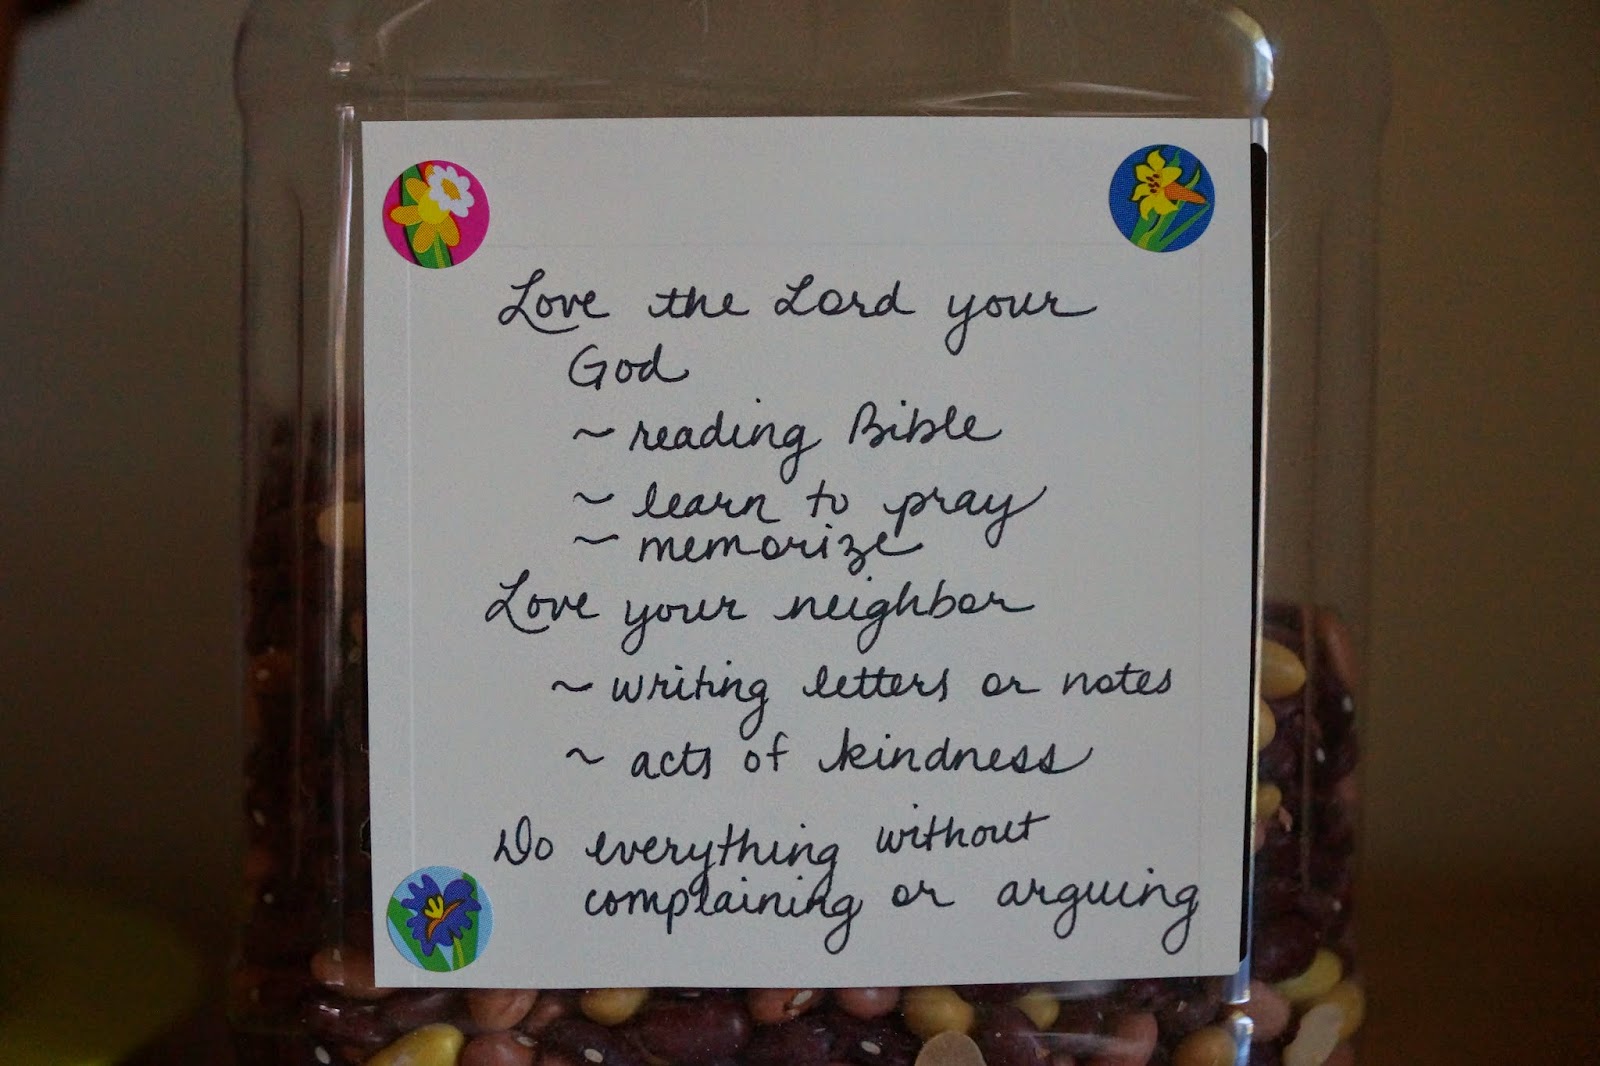 Love the Lord your
God
~ reading Bible
~ learn to pray
~ memorize
Love your neighbor
~ writing letters or notes
~ acts of kindness
Do everything without
complaining or arguing